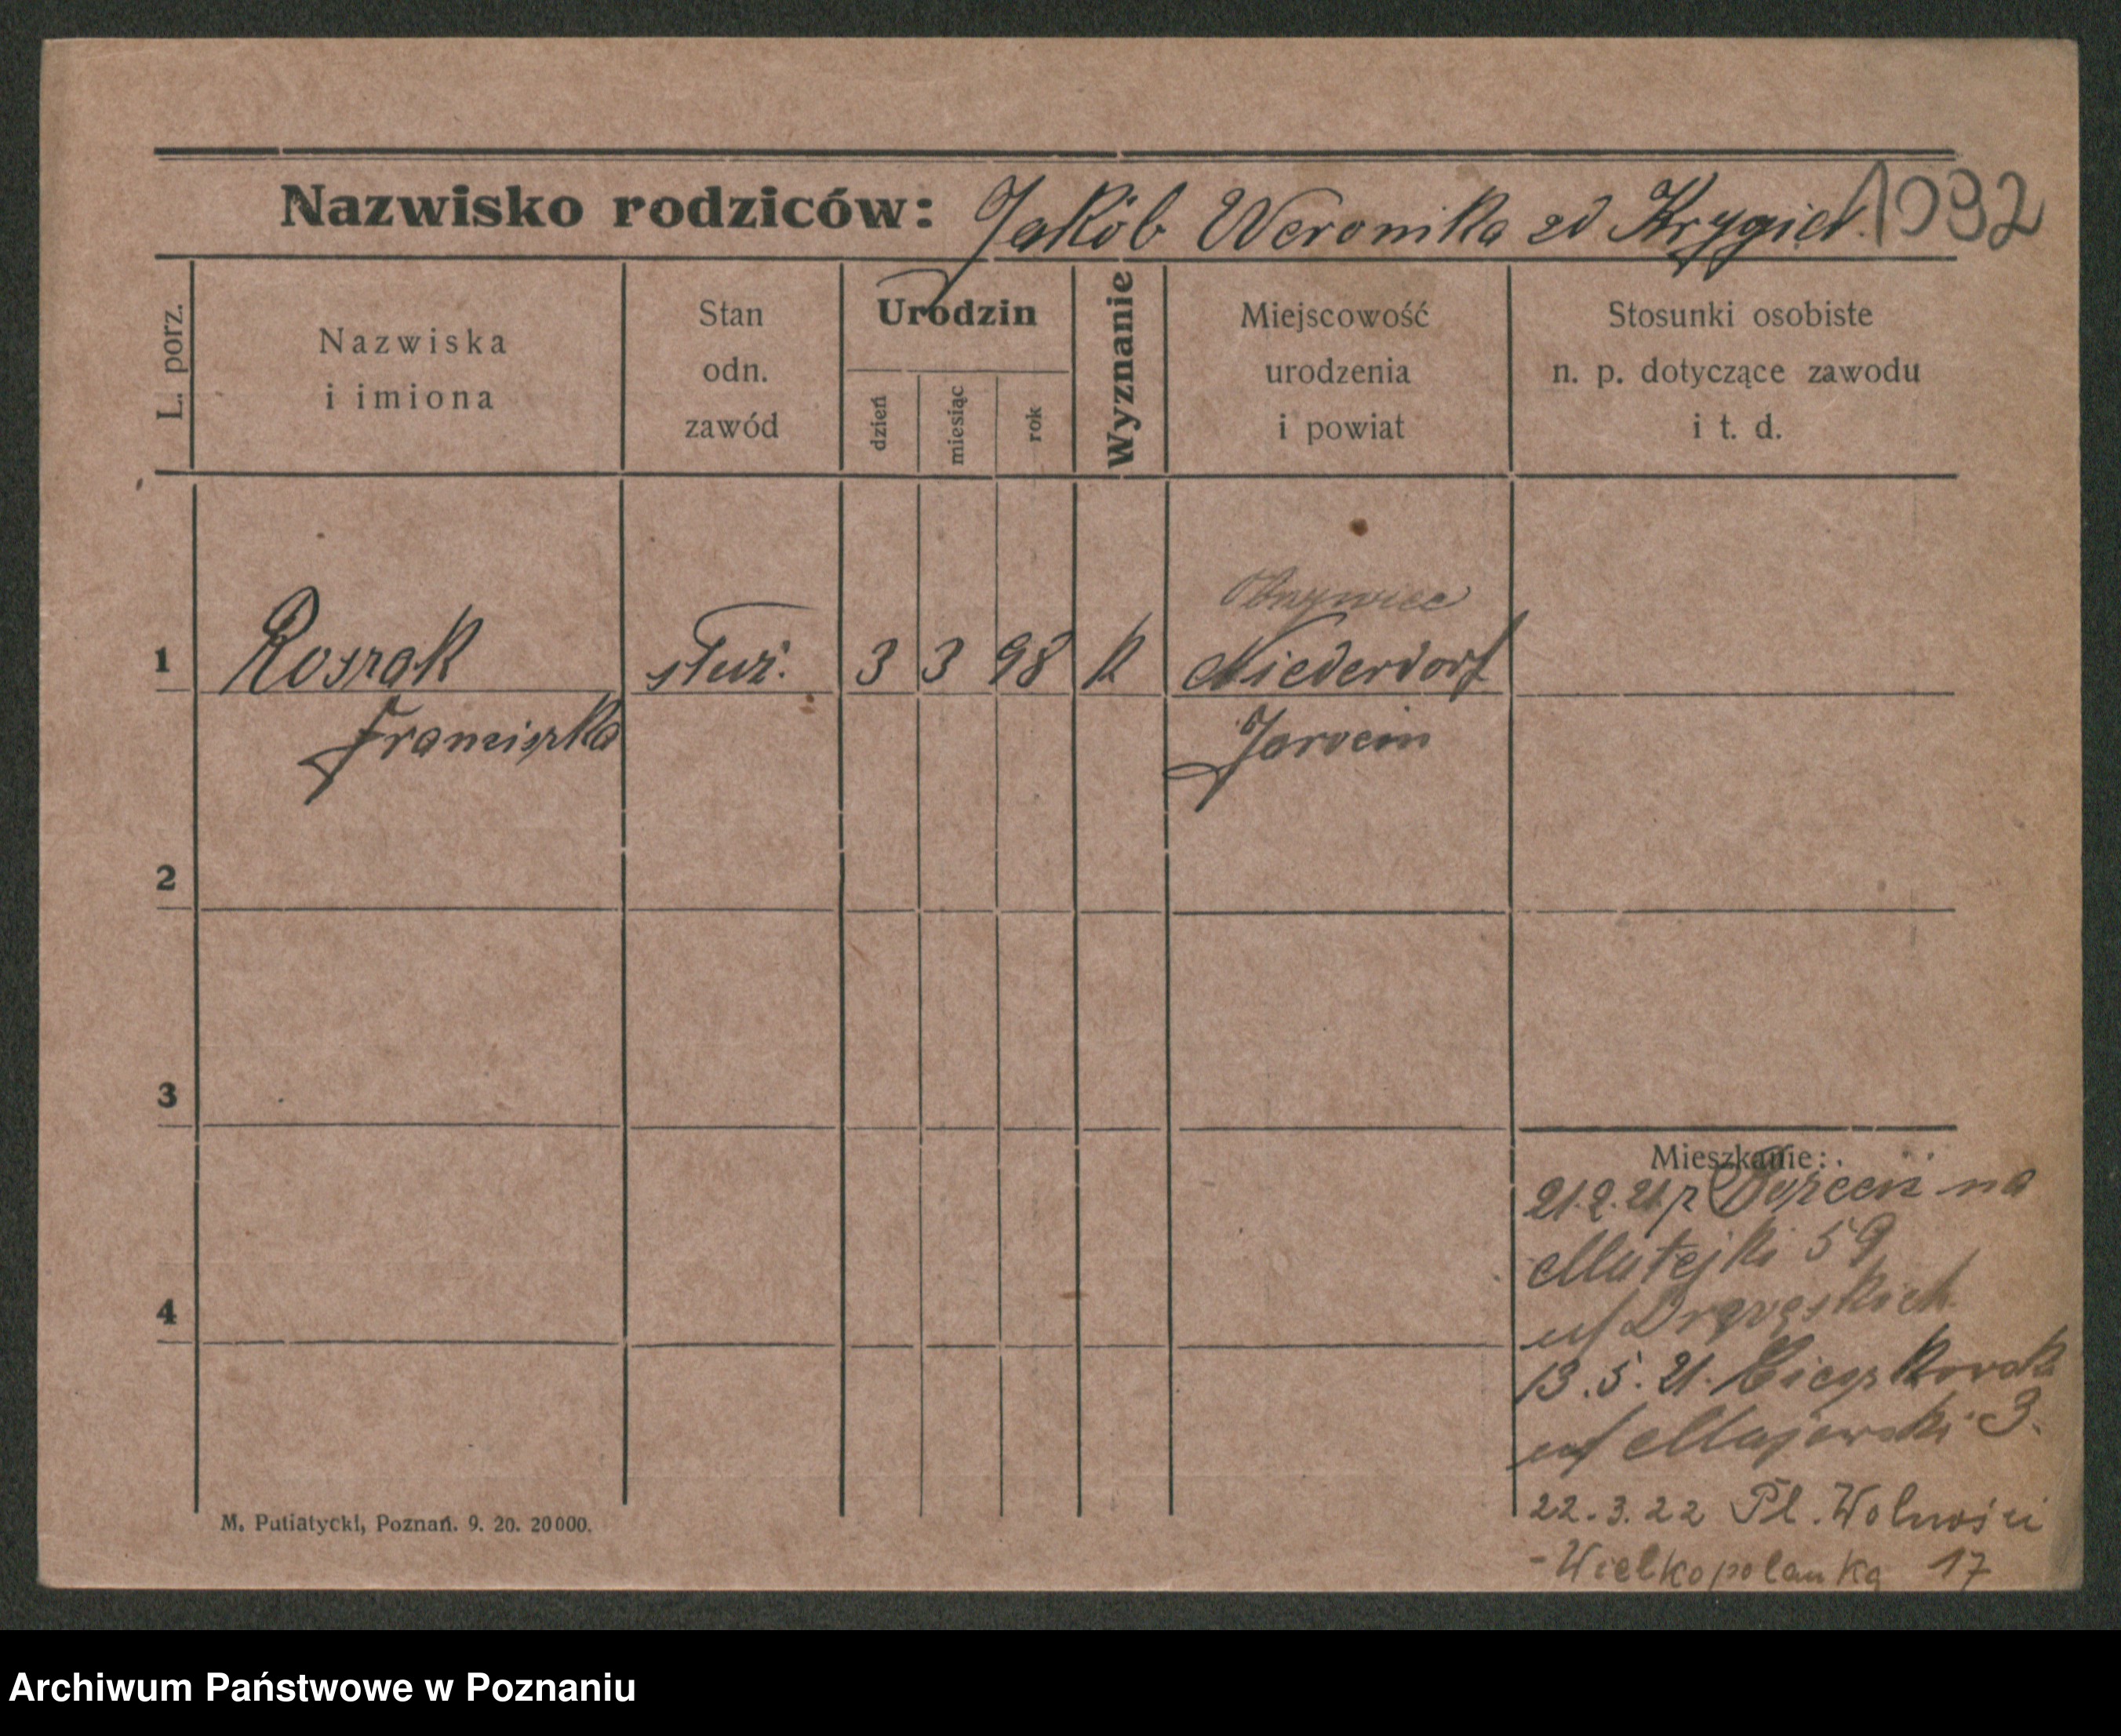 Nazwisko rodziców: Jakób Weronika zd Krygiel. 1092
L. porz.
Nazwiska
i imiona
Stan
odn.
zawód
Urodzin
dzień
miesiąc
rok
Wyznanie
Miejscowość
urodzenia
i powiat
Stosunki osobiste
n. p. dotyczące zawodu
i t. d.
1 Roszak służ. 3 3 98 k Niederdorf
Franciszka Jarocin
2
3
4
Mieszkanie:
21.2.21 z na
Matejki 59
13.5.21.
Majewski 3.
22.3.22 Pl. Wolności
- Wielkopolanka 17
M. Putiatycki, Poznań. 9. 20. 20000.
Archiwum Państwowe w Poznaniu